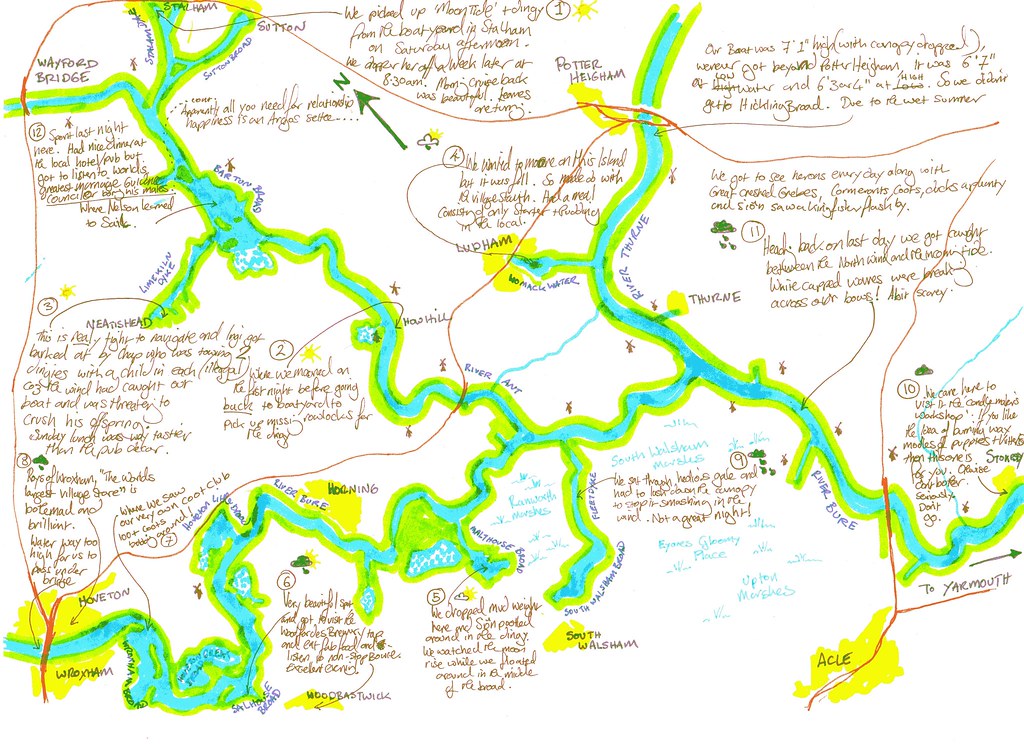 STALHAM
STALHAM DYKE
SUTTON
SUTTON BROAD
WAYFORD
BRIDGE
We picked up 'Moon Tide' + dingy
from the boatyard in Stalham
on Saturday afternoon.
We dropped her off a week later at
8:30am. Morning cruise back
was beautiful. Leaves
are turning.
①
N
POTTER
HEIGHAM
Our Boat was 7'1" high (with canopy dropped),
we never got beyond Potter Heigham. It was 6'7"
at low water and 6'3 or 4" at HIGH. So we didn't
get to Hickling Broad. Due to the wet summer
⑫ Spent last night
here. Had nice dinner at
the local hotel/pub but
got to listen to worlds
greatest marriage guidance
councilor bore his mates.
.....cont.
Apparently all you need for relationship
happiness is an Argos settee.....
Where Nelson learned
to Sail.
BARTON BROAD
④ We wanted to moore on this Island
but it was full. So made do with
the village staith. And a meal
consisting of only Starter + Pudding
in the local.
LUDHAM
WOMACK WATER
RIVER THURNE
We got to see herons every day along with
Great crested Grebes, Cormorants, Coots, ducks a plenty
and Siôn saw a kingfisher flash by.
⑪
Heading back on last day we got caught
between the North wind and the incoming tide.
White capped waves were breaking
across our bows! A bit scarey.
THURNE
LIMEKILN
DYKE
NEATISHEAD
③
This is really tight to navigate and Lingi got
barked at by chap who was towing 2
dingies with a child in each (illegal)
Coz the wind had caught our
boat and was threatening to
crush his offspring.
Sunday lunch was way tastier
than the pub decor.
HOW HILL
②
Where we moored on
the first night before going
back to boatyard to
pick up missing rowlocks for
the dingy
RIVER ANT
⑧
Roys of Wroxham, "The Worlds
largest village Store" is
both mad and
brilliant.
Water way too
high for us to
pass under
bridge
Where we saw
our very own Coot Club
100+ coots
bobbing around
⑦
HOVETON LITTLE BROAD
RIVER BURE
HORNING
Ranworth
Marshes
MALTHOUSE BROAD
FLEET DYKE
SOUTH WALSHAM BROAD
South Walsham
Marshes
⑨
We sat through hideous gale and
had to lash down the canopy
to stop it smashing in the
wind. Not a great night!
Gloomy
Place
Upton
Marshes
RIVER BURE
⑩ We came here to
visit the candle maker's
workshop. If you like
the idea of burning wax
models of puppies + kittens
then this one is
for you. Otherwise
don't bother.
Seriously.
Don't
go.
TO YARMOUTH
HOVETON
WROXHAM
WROXHAM BROAD
SALHOUSE
BROAD
⑥
Very beautiful spot
and got to visit the
Woodfordes Brewery tap
and eat pub food and
listen to non-stop Bowie.
Excellent evening.
WOODBASTWICK
⑤
We dropped mud weight
here and Siôn pootled
around in the dingy.
We watched the moon
rise while we floated
around in the middle
of the broad.
SOUTH
WALSHAM
ACLE